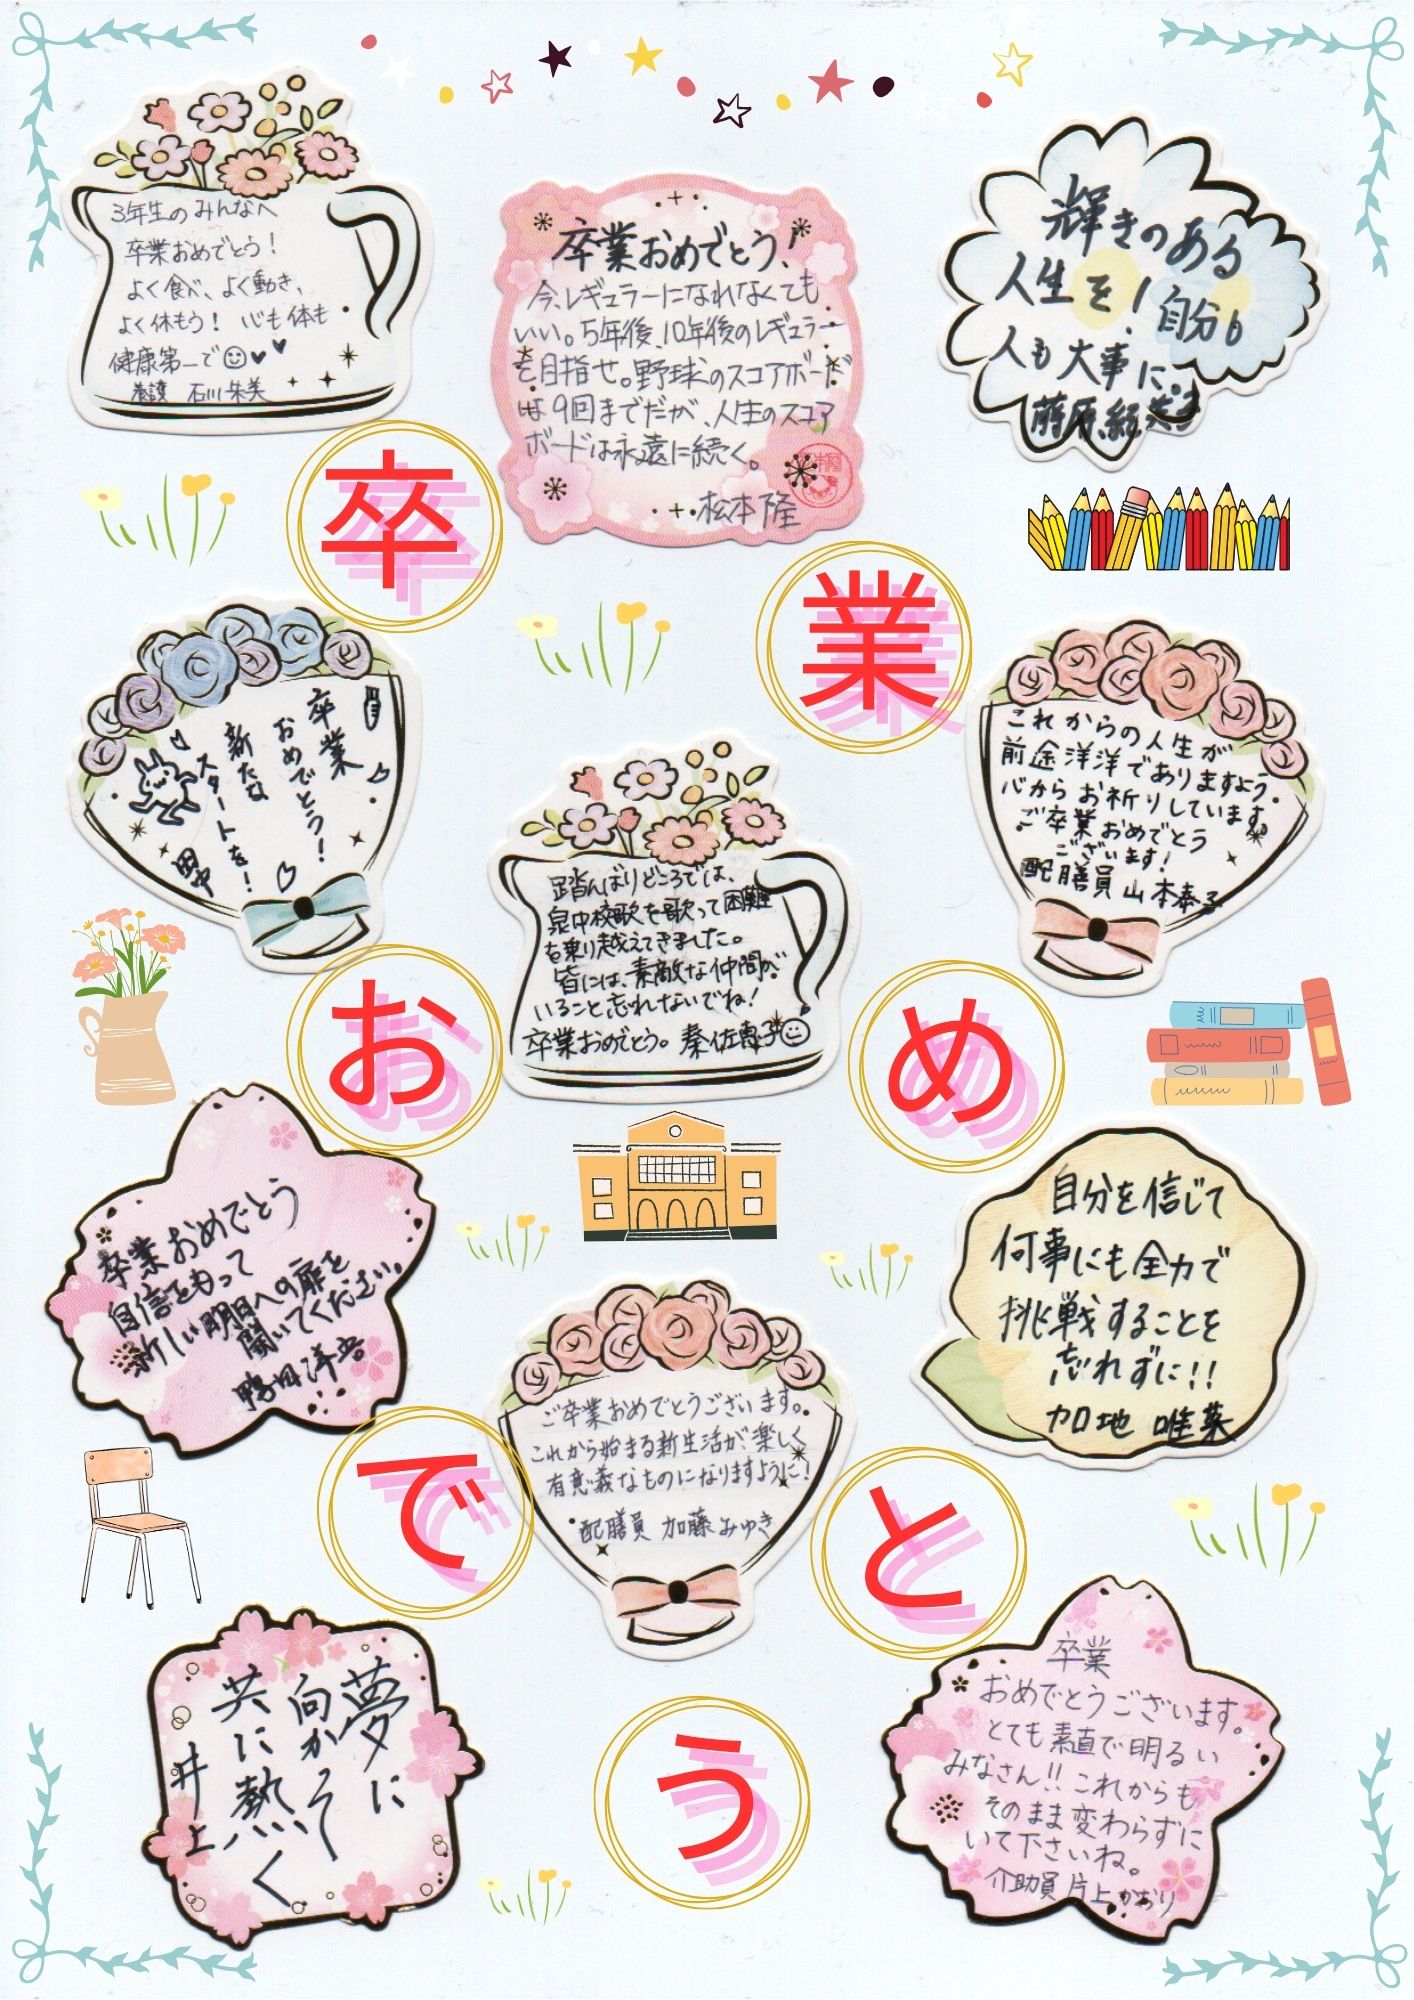 3年生のみんなへ
卒業おめでとう!
よく食べ、よく動き、
よく休もう! 心も体も
健康第一で
養護 石川朱美
卒業おめでとう!
今、レギュラーになれなくても
いい。5年後、10年後のレギュラー
を目指せ。野球のスコアボード
は9回までだが、人生のスコア
ボードは永遠に続く。
松本隆
輝きのある
人生を!自分も
人も大事に。
藤原
卒
業
卒業
おめでとう!
新たな
スタートを!
田中
踏んばりどころでは、
泉中校歌を歌って困難
を乗り越えてきました。
皆には、素敵な仲間が
いること忘れないでね!
卒業おめでとう。秦佐恵子
これからの人生が
前途洋洋でありますよう。
心からお祈りしています。
ご卒業おめでとう
ございます!
配膳員 山本泰子
お
め
卒業おめでとう
自信をもって
新しい明日への扉を
開いてください。
鴨田洋
ご卒業おめでとうございます。
これから始まる新生活が、楽しく
有意義なものになりますように!
配膳員 加藤みゆき
自分を信じて
何事にも全力で
挑戦することを
忘れずに!!
加地 唯菜
で
と
夢に
向かって
共に熱く
井上
う
卒業
おめでとうございます。
とても素直で明るい
みなさん!!これからも
そのまま変わらずに
いて下さいね。
介助員 片上かおり